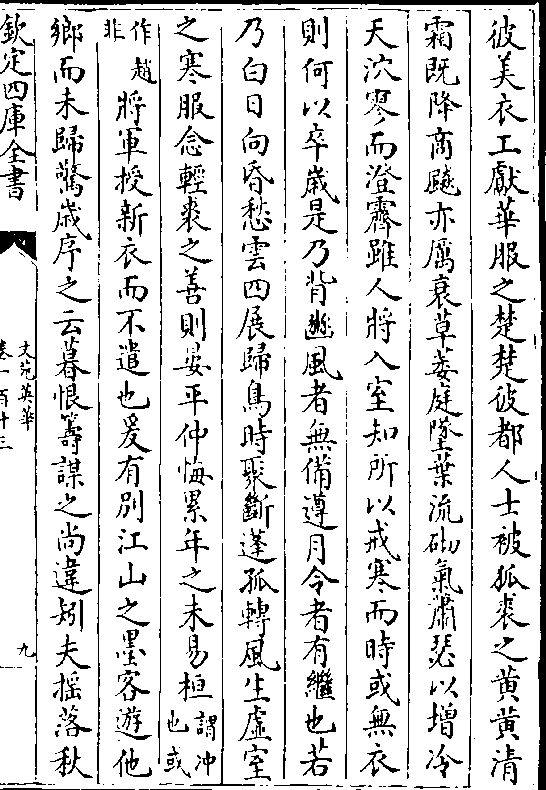 彼美衣工獻華服之楚楚彼都人士被狐裘之黄黄清
霜既降商飈亦厲衰草萎庭墜葉流砌氣蕭瑟以增冷
天泬寥而澄霽雖人將入室知所以戒寒而時或無衣
則何以卒歲是乃背豳風者無備遵月令者有繼也若
乃白日向昏愁雲四展歸鳥時聚斷蓬孤轉風生虛室
之寒服念輕裘之善則晏平仲悔累年之未易桓謂冲也或
作趙非將軍授新衣而不遣也爰有别江山之墨客遊他
鄉而未歸驚歲序之云暮恨籌謀之尚違矧夫揺落秋
欽定四庫全書
文苑英華
卷一百十三
九